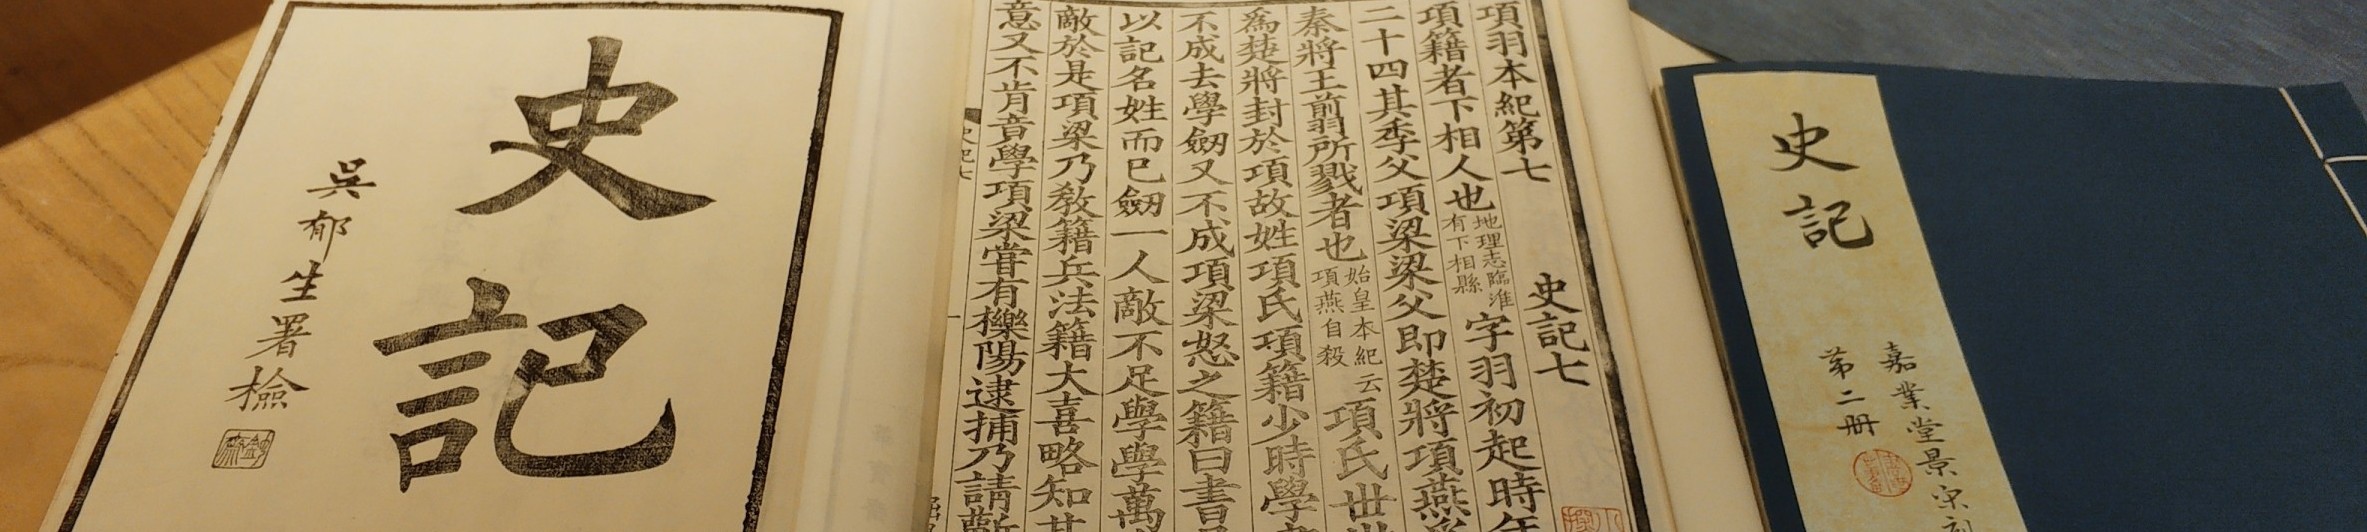 史記
吳郁生署檢
項羽本紀第七 史記七
項籍者下相人也地理志臨淮有下相縣字羽初起時年
二十四其季父項梁梁父即楚將項燕爲
秦將王翦所戮者也始皇本紀云項燕自殺項氏世世
爲楚將封於項故姓項氏項籍少時學書
不成去學劒又不成項梁怒之籍曰書足
以記名姓而已劒一人敵不足學學萬
敵於是項梁乃敎籍兵法籍大喜略知其
意又不肯竟學項梁嘗有櫟陽逮捕乃請蘄
史記
嘉業堂景宋刻
第二册